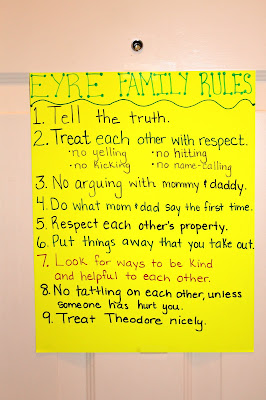 EYRE FAMILY RULES
1. Tell the truth.
2. Treat each other with respect.
• no yelling • no hitting
• no kicking • no name-calling
3. No arguing with mommy & daddy.
4. Do what mom & dad say the first time.
5. Respect each other's property.
6. Put things away that you take out.
7. Look for ways to be kind
and helpful to each other.
8. No tattling on each other, unless
someone has hurt you.
9. Treat Theodore nicely.